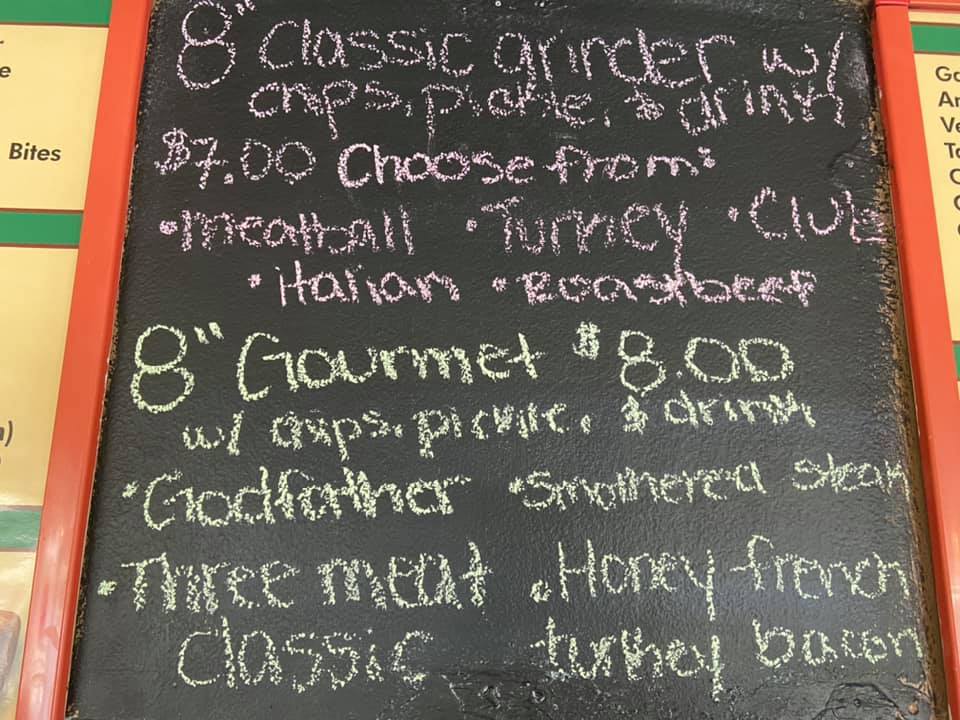 8" Classic grinder w/
chips, pickle, & drink
$7.00 Choose from:
•meatball •Turkey •Club
•Italian •Roastbeef
8" Gourmet $8.00
w/ chips, pickle, & drink
•Godfather •Smothered steak
•Three meat •Honey french
Classic turkey bacon
e
Bites
Ve